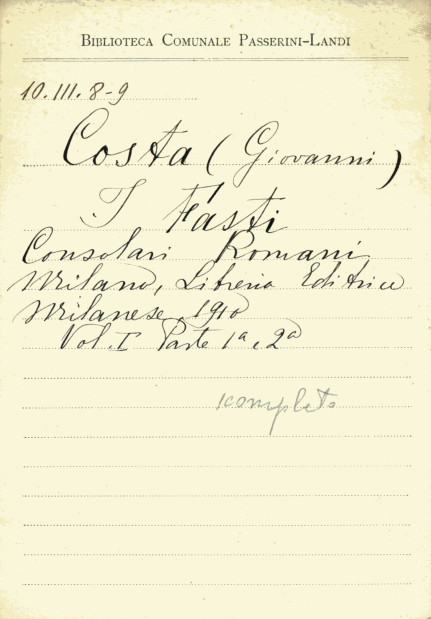 BIBLIOTECA COMUNALE PASSERINI-LANDI
10.III.8-9
Costa (Giovanni)
I Fasti
Consolari Romani
Milano, Libreria Editrice
Milanese, 1910
Vol. I Parte 1ª e 2ª